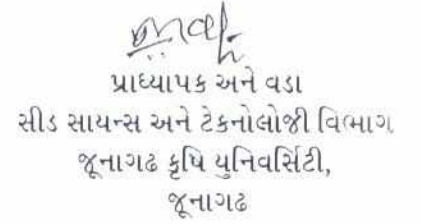 પ્રાધ્યાપક અને વડા
સીડ સાયન્સ અને ટેકનોલોજી વિભાગ
જૂનાગઢ કૃષિ યુનિવર્સિટી,
જૂનાગઢ